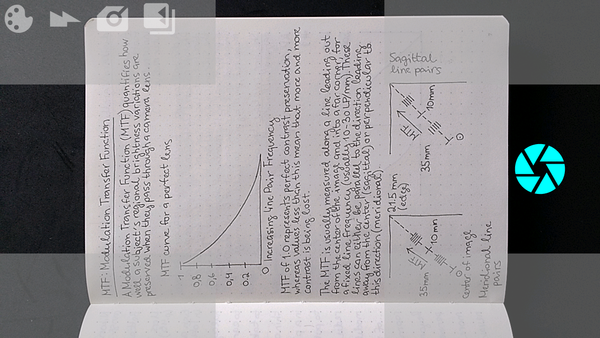 MTF: Modulation Transfer Function
A Modulation Transfer Function (MTF) quantifies how
well a subject's regional brightness variations are
preserved when they pass through a camera lens.
MTF curve for a perfect lens
1
0,8
0,6
0,4
0.2
0 Increasing Line Pair Frequency
MTF of 1.0 represents perfect contrast preservation,
whereas values less than this mean that more and more
contrast is being lost.
The MTF is usually measured along a line leading out
from the center of the image and into a far corner, for
a fixed line frequency (usually 10-30 LP/mm). These
lines can either be parallel to the direction leading
away from the center (sagittal) or perpendicular to
this direction (meridional).
21.5 mm
(edge)
MTF
10mm
35mm
center of image
Meridional line
pairs
Sagittal
line pairs
MTF
10mm
35mm